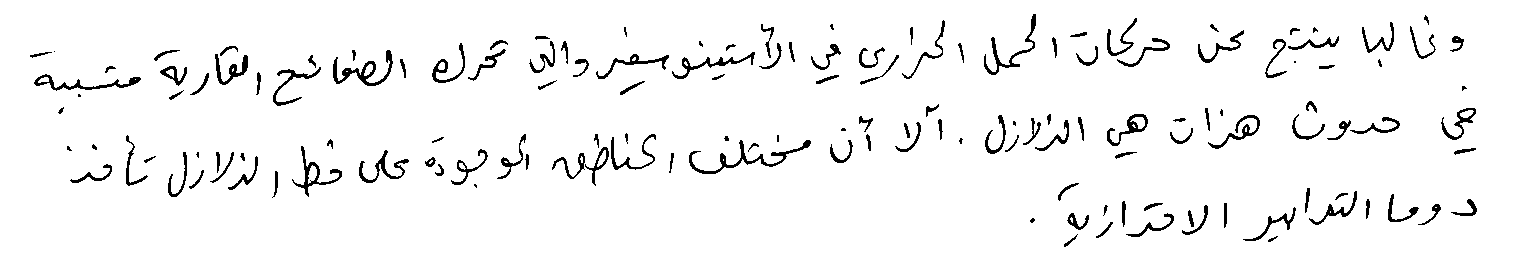 وغالبا ينتج عن حركات الحمل الحراري في الأستينوسفير والتي تحرك الصفائح القارية متسببة
في حدوث هزات هي الزلازل . ألا أن مختلف المناطق الموجودة على خط الزلازل تأخذ
دوما التدابير الاحترازية .